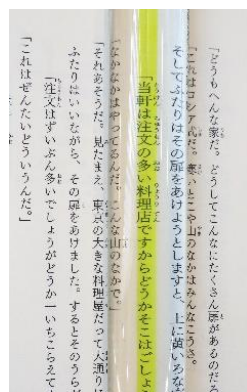 「どうもへんな家だ。どうしてこんなにたくさん扉があるのだろ
「これはロシア式だ。寒いとこや山のなかはみんなこうさ。」
そしてふたりはその扉をあけようとしますと、上に黄いろな
「当軒は注文の多い料理店ですからどうかそこはごしょ
「なかなかはやってるんだ。こんな山のなかで。」
「それあそうだ。見たまえ、東京の大きな料理屋だって大通りに
ふたりはいいながら、その扉をあけました。するとそのうら
「注文はずいぶん多いでしょうがどうか一いちこらえて
「これはぜんたいどういうんだ。」